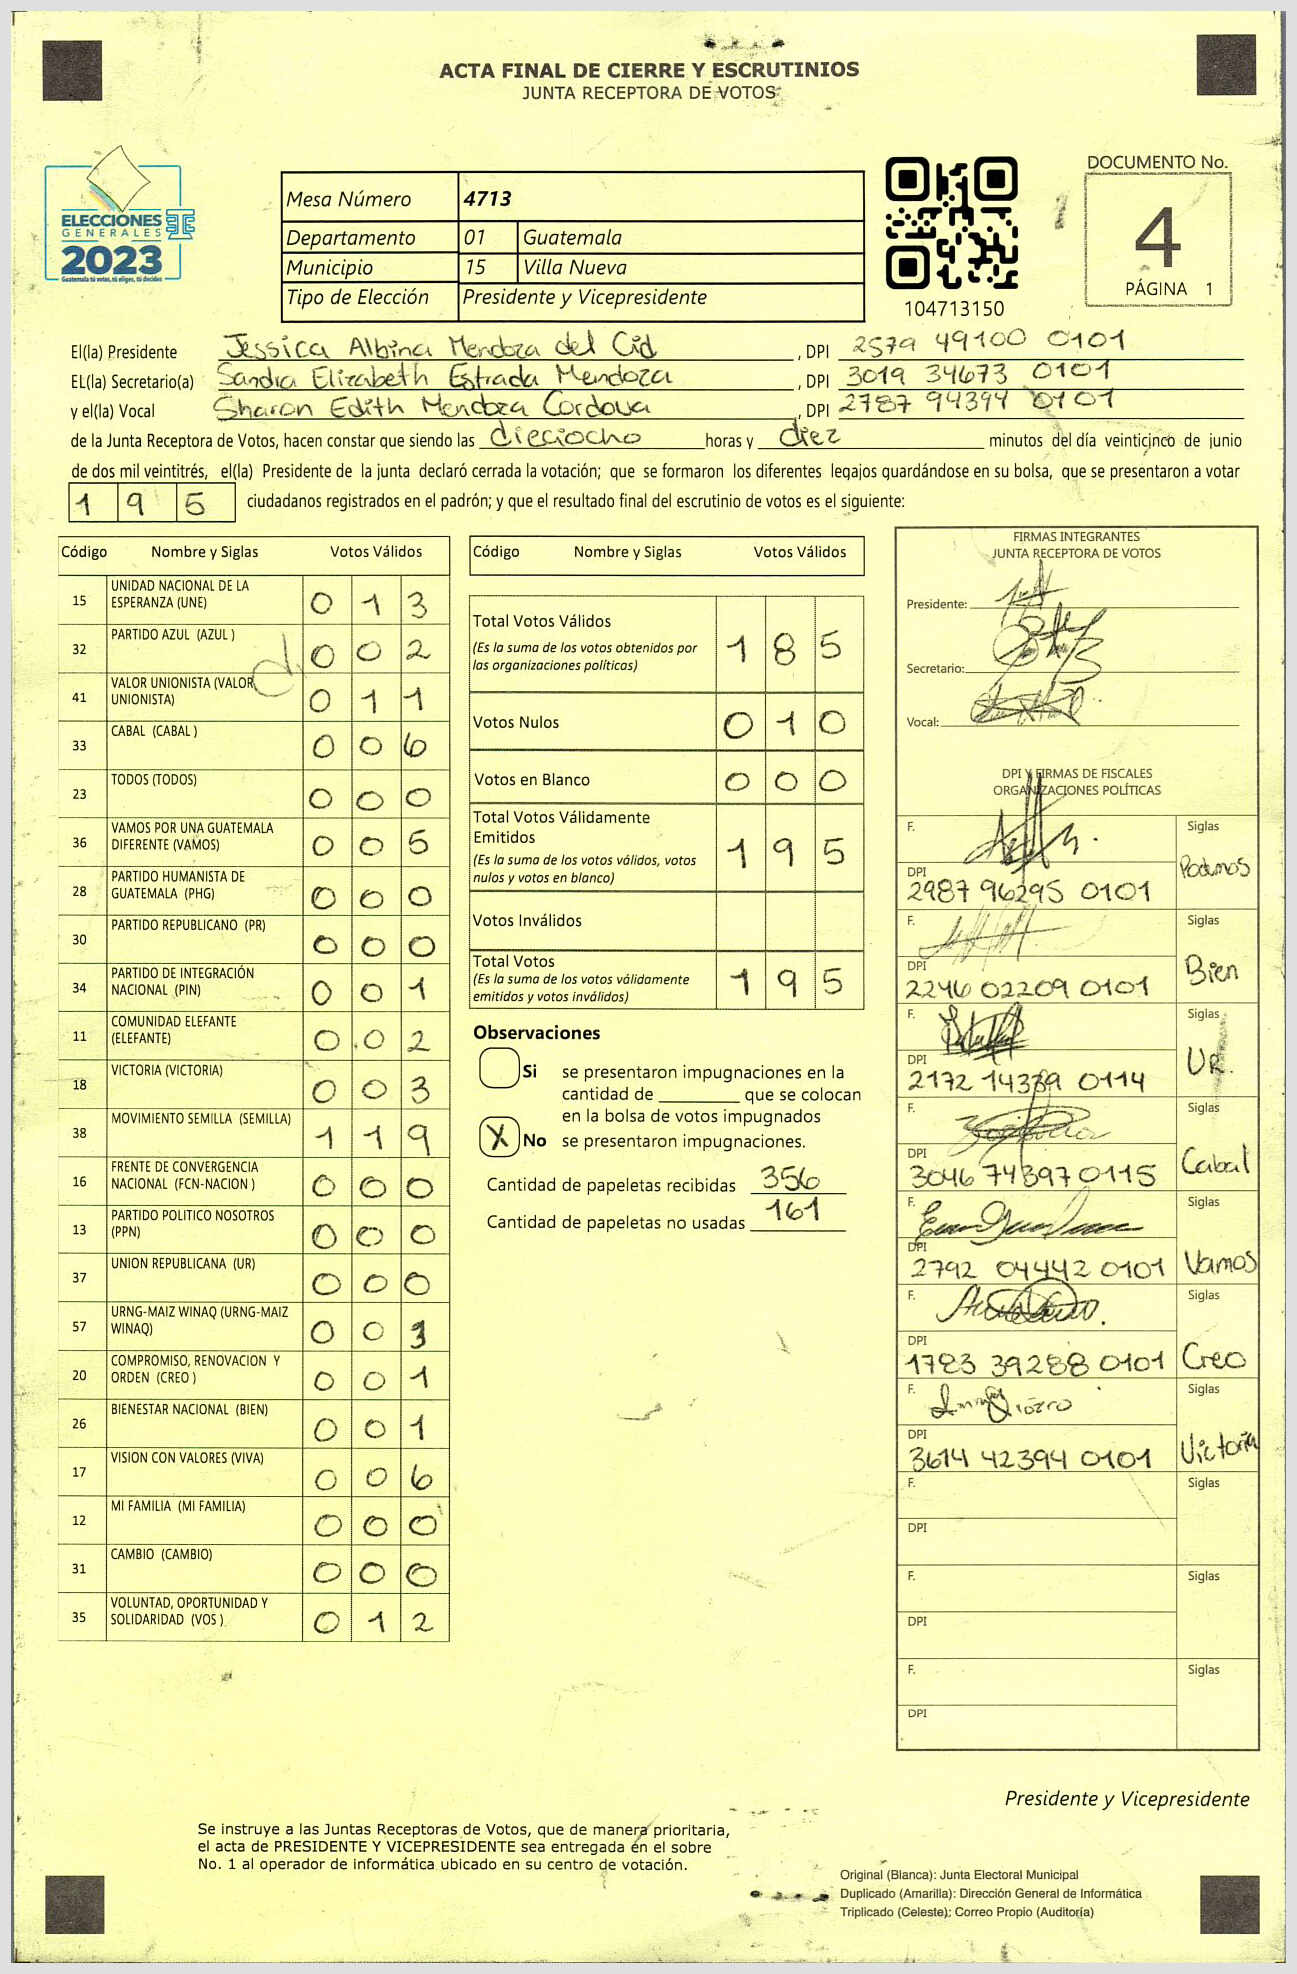 ACTA FINAL DE CIERRE Y ESCRUTINIOS
JUNTA RECEPTORA DE VOTOS
ELECCIONES
GENERALES
2023
Guatemala tú votas, tú eliges, tú decides
Mesa Número 4713
Departamento 01 Guatemala
Municipio 15 Villa Nueva
Tipo de Elección Presidente y Vicepresidente
104713150
DOCUMENTO No.
4
PÁGINA 1
El(la) Presidente Jessica Albina Mendoza del Cid, DPI 2579 49100 0101
EL(la) Secretario(a) Sandra Elizabeth Estrada Mendoza, DPI 3019 34673 0101
y el(la) Vocal Sharon Edith Mendoza Cordova, DPI 2787 94394 0101
de la Junta Receptora de Votos, hacen constar que siendo las dieciocho horas y diez minutos del día veinticinco de junio
de dos mil veintitrés, el(la) Presidente de la junta declaró cerrada la votación; que se formaron los diferentes legajos guardándose en su bolsa, que se presentaron a votar
195 ciudadanos registrados en el padrón; y que el resultado final del escrutinio de votos es el siguiente:
Código Nombre y Siglas Votos Válidos
15 UNIDAD NACIONAL DE LA ESPERANZA (UNE) 0 1 3
32 PARTIDO AZUL (AZUL ) 0 0 2
41 VALOR UNIONISTA (VALOR UNIONISTA) 0 1 1
33 CABAL (CABAL ) 0 0 6
23 TODOS (TODOS) 0 0 0
36 VAMOS POR UNA GUATEMALA DIFERENTE (VAMOS) 0 0 5
28 PARTIDO HUMANISTA DE GUATEMALA (PHG) 0 0 0
30 PARTIDO REPUBLICANO (PR) 0 0 0
34 PARTIDO DE INTEGRACIÓN NACIONAL (PIN) 0 0 1
11 COMUNIDAD ELEFANTE (ELEFANTE) 0 0 2
18 VICTORIA (VICTORIA) 0 0 3
38 MOVIMIENTO SEMILLA (SEMILLA) 1 1 9
16 FRENTE DE CONVERGENCIA NACIONAL (FCN-NACION ) 0 0 0
13 PARTIDO POLITICO NOSOTROS (PPN) 0 0 0
37 UNION REPUBLICANA (UR) 0 0 0
57 URNG-MAIZ WINAQ (URNG-MAIZ WINAQ) 0 0 3
20 COMPROMISO, RENOVACION Y ORDEN (CREO ) 0 0 1
26 BIENESTAR NACIONAL (BIEN) 0 0 1
17 VISION CON VALORES (VIVA) 0 0 6
12 MI FAMILIA (MI FAMILIA) 0 0 0
31 CAMBIO (CAMBIO) 0 0 0
35 VOLUNTAD, OPORTUNIDAD Y SOLIDARIDAD (VOS ) 0 1 2
Código Nombre y Siglas Votos Válidos
Total Votos Válidos 1 8 5
(Es la suma de los votos obtenidos por
las organizaciones políticas)
Votos Nulos 0 1 0
Votos en Blanco 0 0 0
Total Votos Válidamente
Emitidos 1 9 5
(Es la suma de los votos válidos, votos
nulos y votos en blanco)
Votos Inválidos
Total Votos 1 9 5
(Es la suma de los votos válidamente
emitidos y votos inválidos)
Observaciones
Si se presentaron impugnaciones en la
cantidad de ________ que se colocan
en la bolsa de votos impugnados
X No se presentaron impugnaciones.
Cantidad de papeletas recibidas 356
Cantidad de papeletas no usadas 161
FIRMAS INTEGRANTES
JUNTA RECEPTORA DE VOTOS
Presidente:
Secretario:
Vocal:
DPI Y FIRMAS DE FISCALES
ORGANIZACIONES POLÍTICAS
F. Siglas
DPI 2987 96295 0101 Podemos
F. Siglas
DPI 2246 02209 0101 Bien
F. Siglas
DPI 2172 14389 0114 UR.
F. Siglas
DPI 3046 74397 0115 Cabal
F. Siglas
DPI 2792 04442 0101 Vamos
F. Siglas
DPI 1783 39288 0101 Creo
F. Siglas
DPI 3614 42394 0101 Victoria
F. Siglas
DPI
F. Siglas
DPI
F. Siglas
DPI
Presidente y Vicepresidente
Se instruye a las Juntas Receptoras de Votos, que de manera prioritaria,
el acta de PRESIDENTE Y VICEPRESIDENTE sea entregada en el sobre
No. 1 al operador de informática ubicado en su centro de votación.
Original (Blanca): Junta Electoral Municipal
Duplicado (Amarilla): Dirección General de Informática
Triplicado (Celeste): Correo Propio (Auditoría)